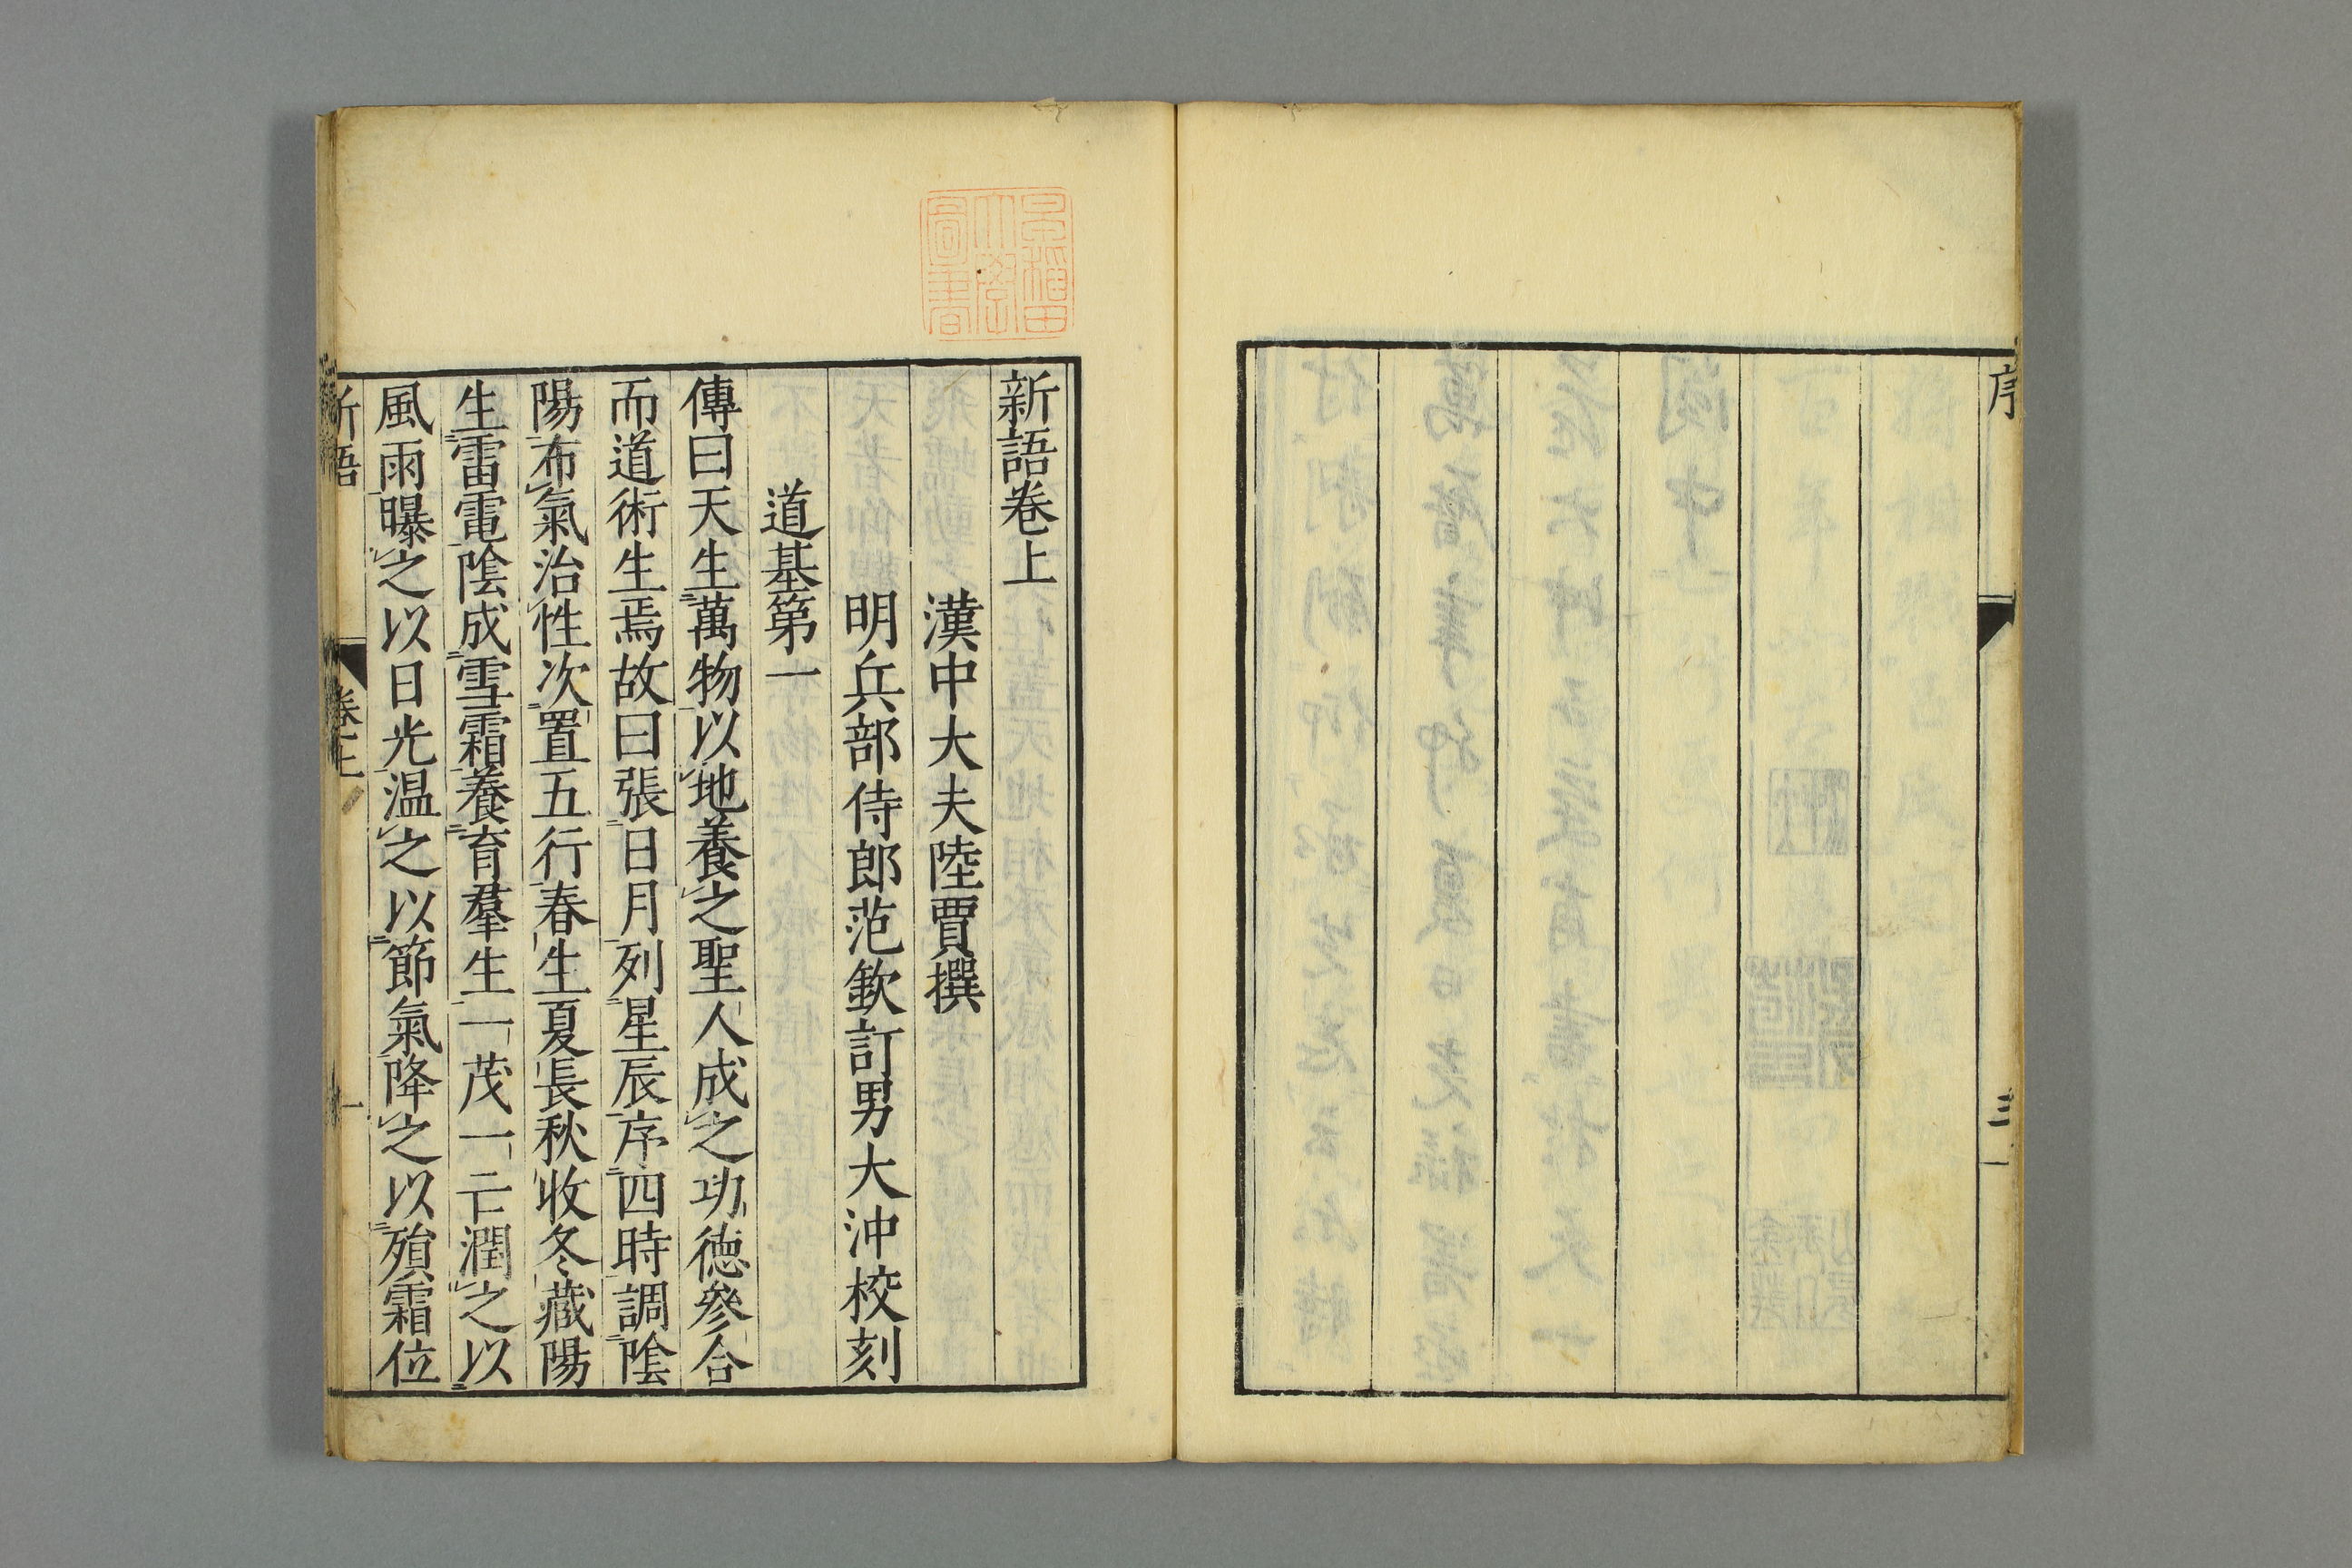 序
三
早稲田
大學
圖書
新語卷上
漢中大夫陸賈撰
明兵部侍郎范欽訂男大沖校刻
道基第一
傳曰天生萬物以地養之聖人成之功德參合
而道術生焉故曰張日月列星辰序四時調陰
陽布氣治性次置五行春生夏長秋收冬藏陽
生雷電陰成雪霜養育羣生一茂一亡潤之以
風雨曝之以日光温之以節氣降之以殞霜位
新語
卷上
一